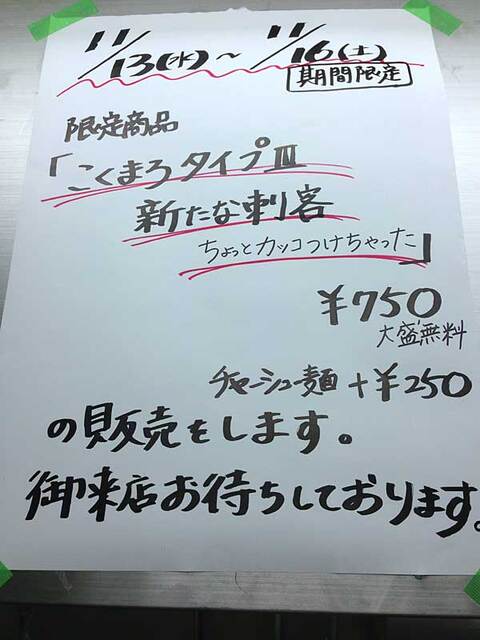 11/13(水)～11/16(土)
期間限定
限定商品
「こくまろタイプⅢ
新たな刺客
ちょっとカッコつけちゃった」
¥750
大盛無料
チャーシュー麺+¥250
の販売をします。
御来店お待ちしております。